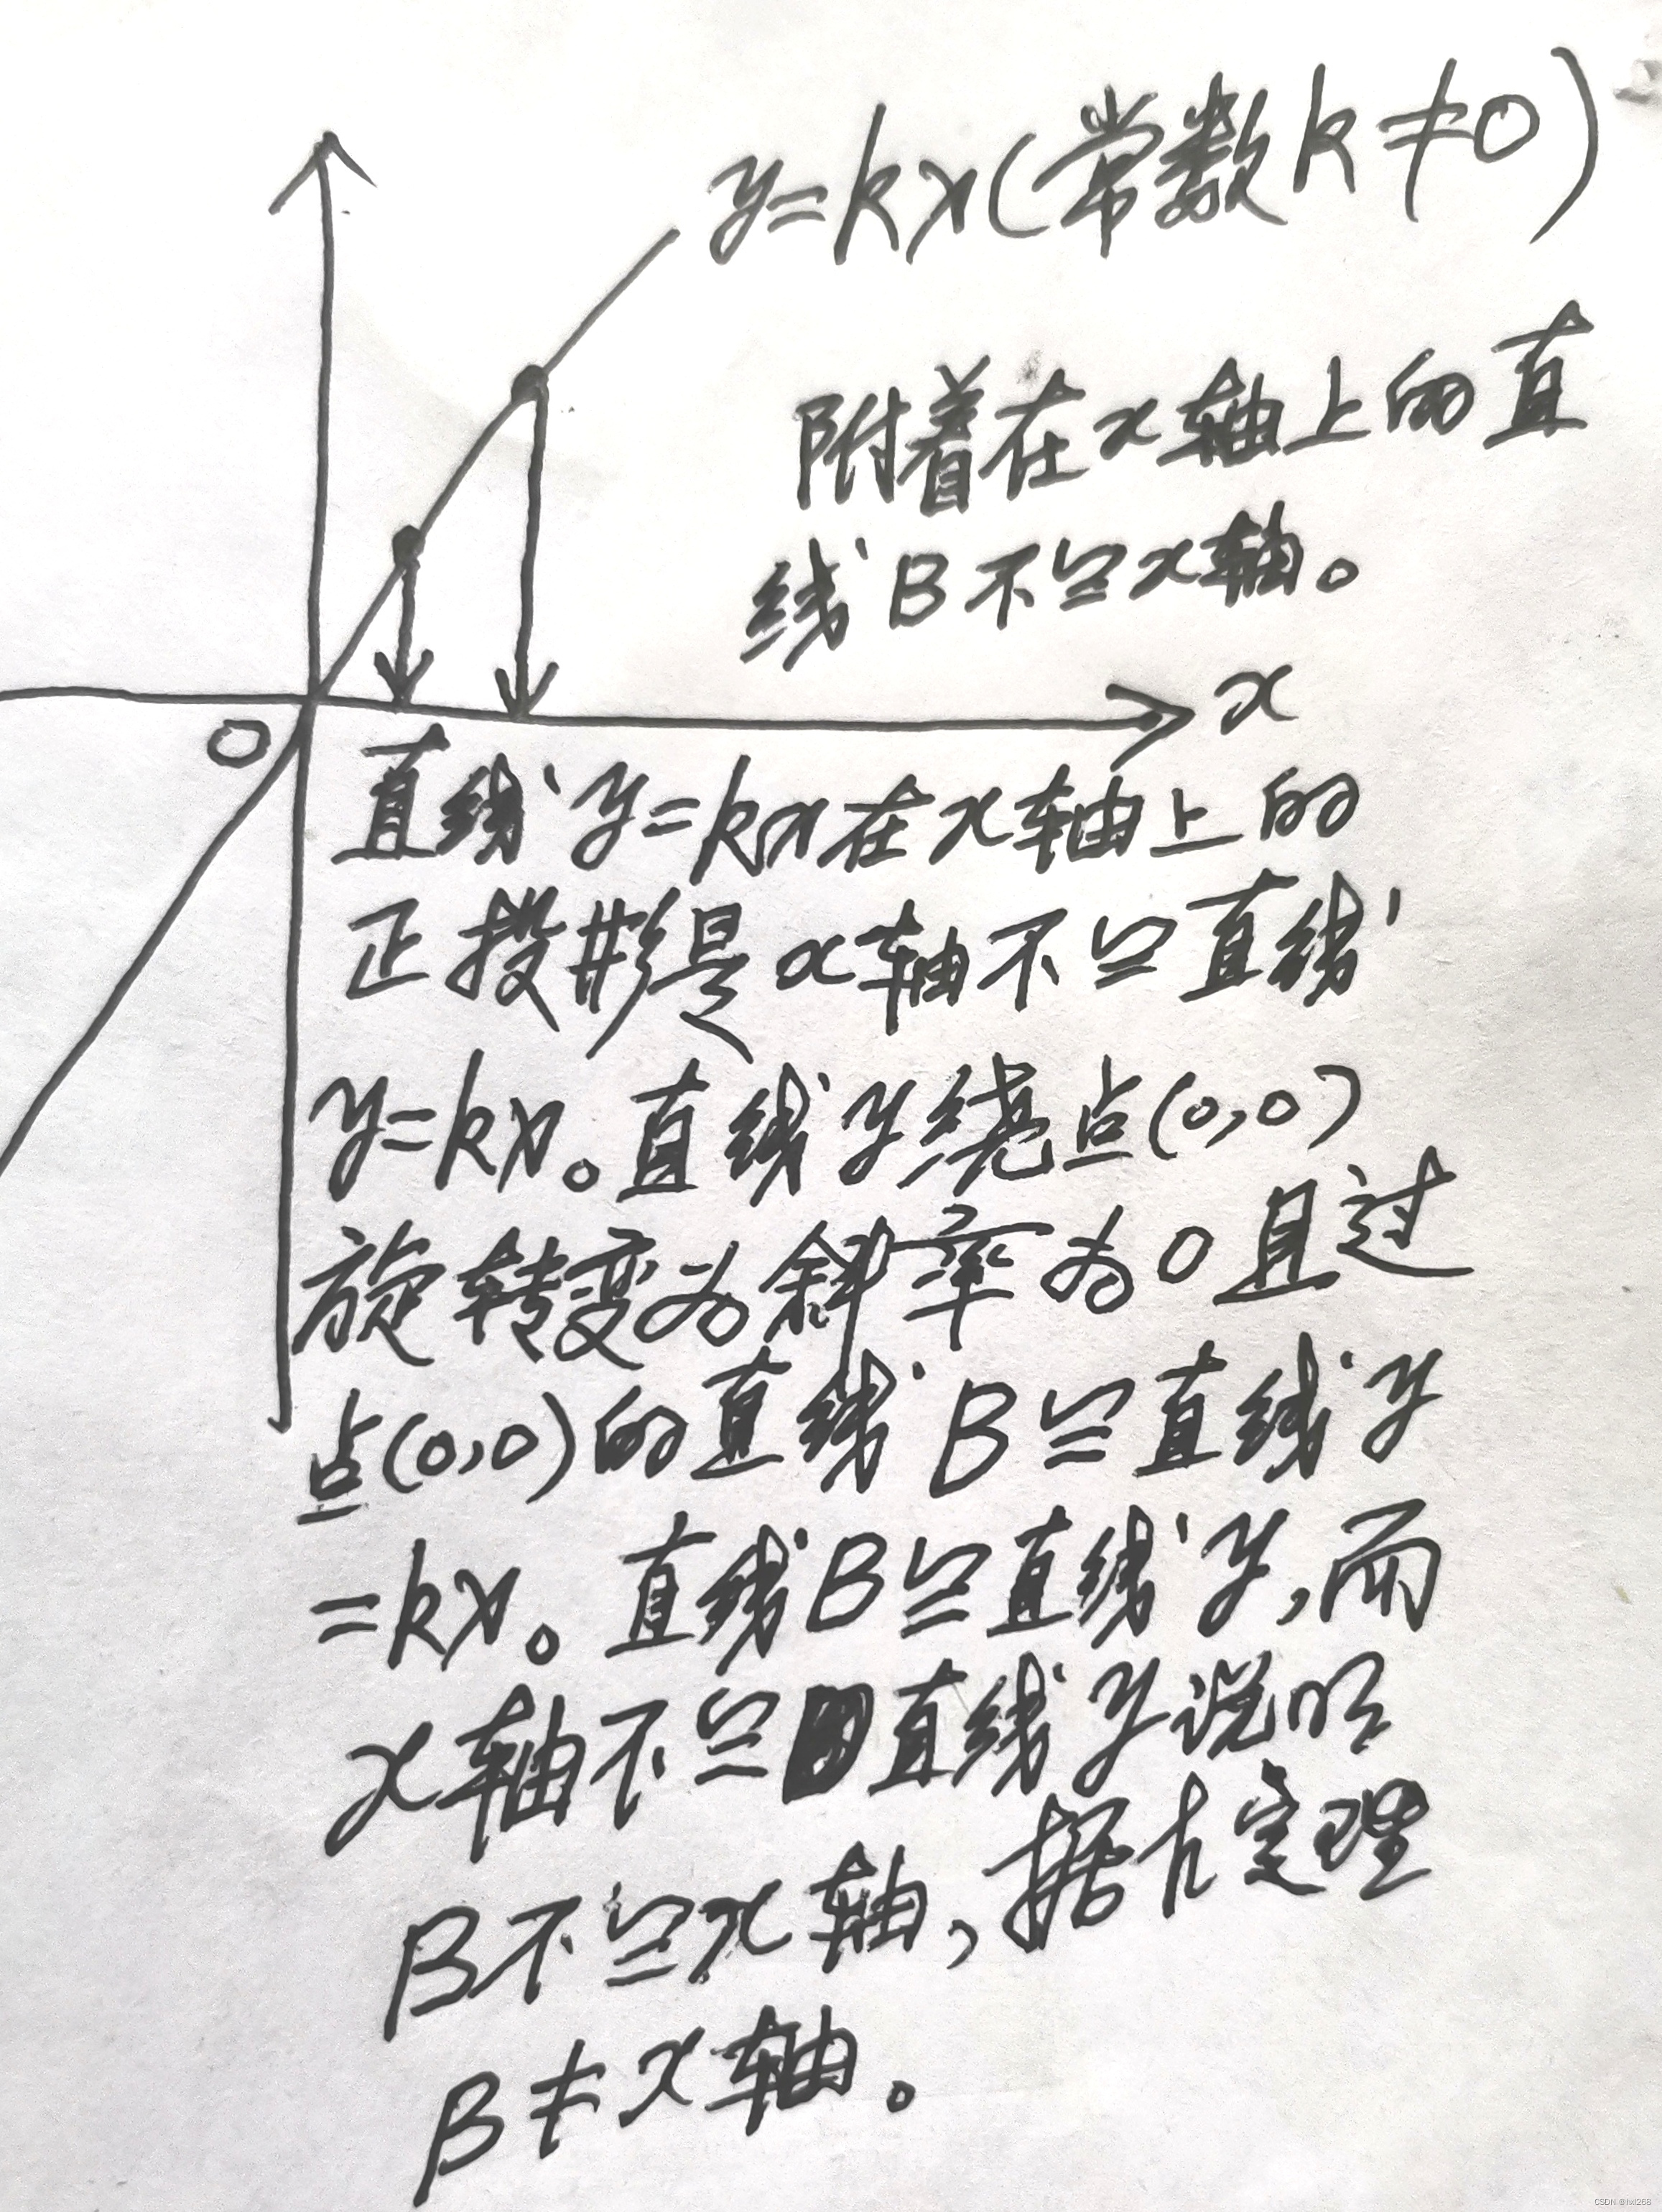 y=kx(常数k≠0)
附着在x轴上的直
线B不≌x轴。
x
O
直线y=kx在x轴上的
正投影是x轴不≌直线
y=kx。直线y绕点(0,0)
旋转变为斜率为0且过
点(0,0)的直线B≌直线y
=kx。直线B≌直线y,而
x轴不≌直线y说明
B不≌x轴,据h定理
B≠x轴。
CSDN @hxl268